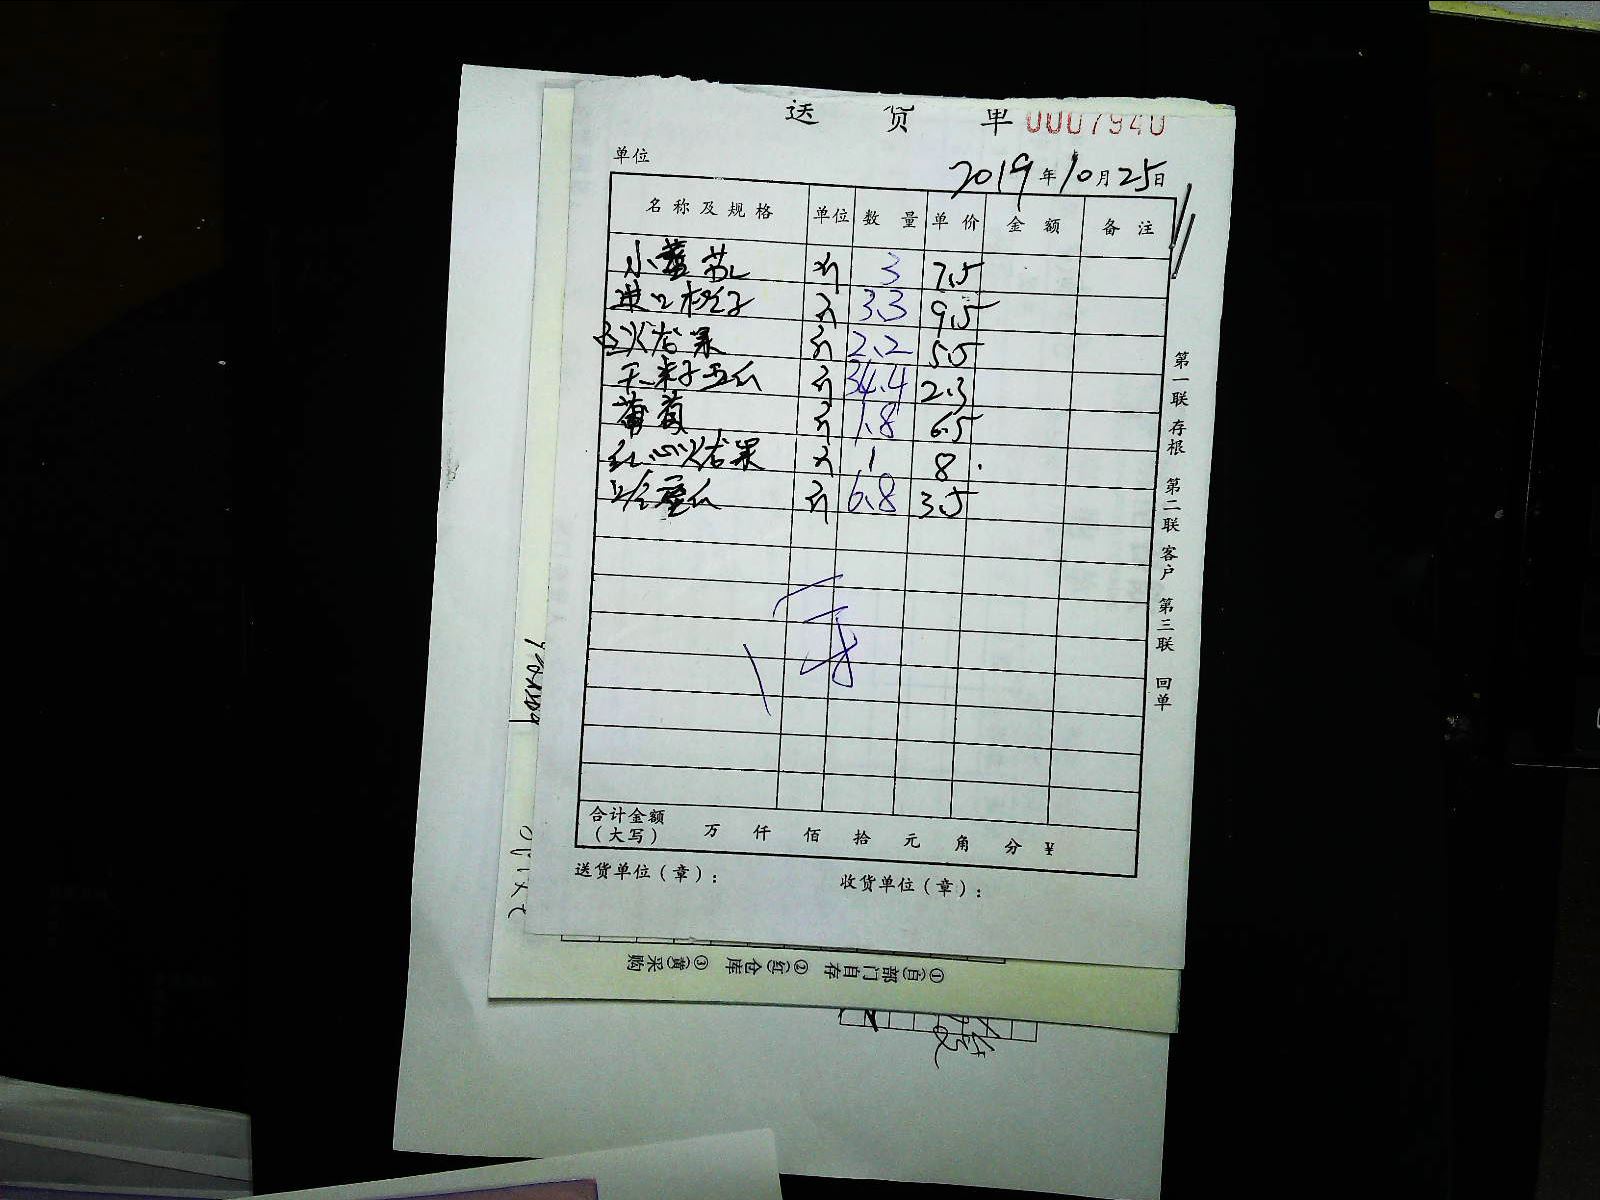 送 货 单 0007940
单位
2019年10月25日
名称及规格 单位 数量 单价 金额 备注
小蕃茄 斤 3 7.5
进口橙子 斤 3.3 9.5
白火龙果 斤 2.2 5.5
无籽西瓜 斤 34.4 2.3
葡萄 斤 1.8 6.5
红心火龙果 斤 1 8.
哈蜜瓜 斤 6.8 3.5
合计金额
(大写) 万 仟 佰 拾 元 角 分 ¥
送货单位(章): 收货单位(章):
第一联 存根 第二联 客户 第三联 回单
①(白)部门自存 ②(红)仓库 ③(黄)采购